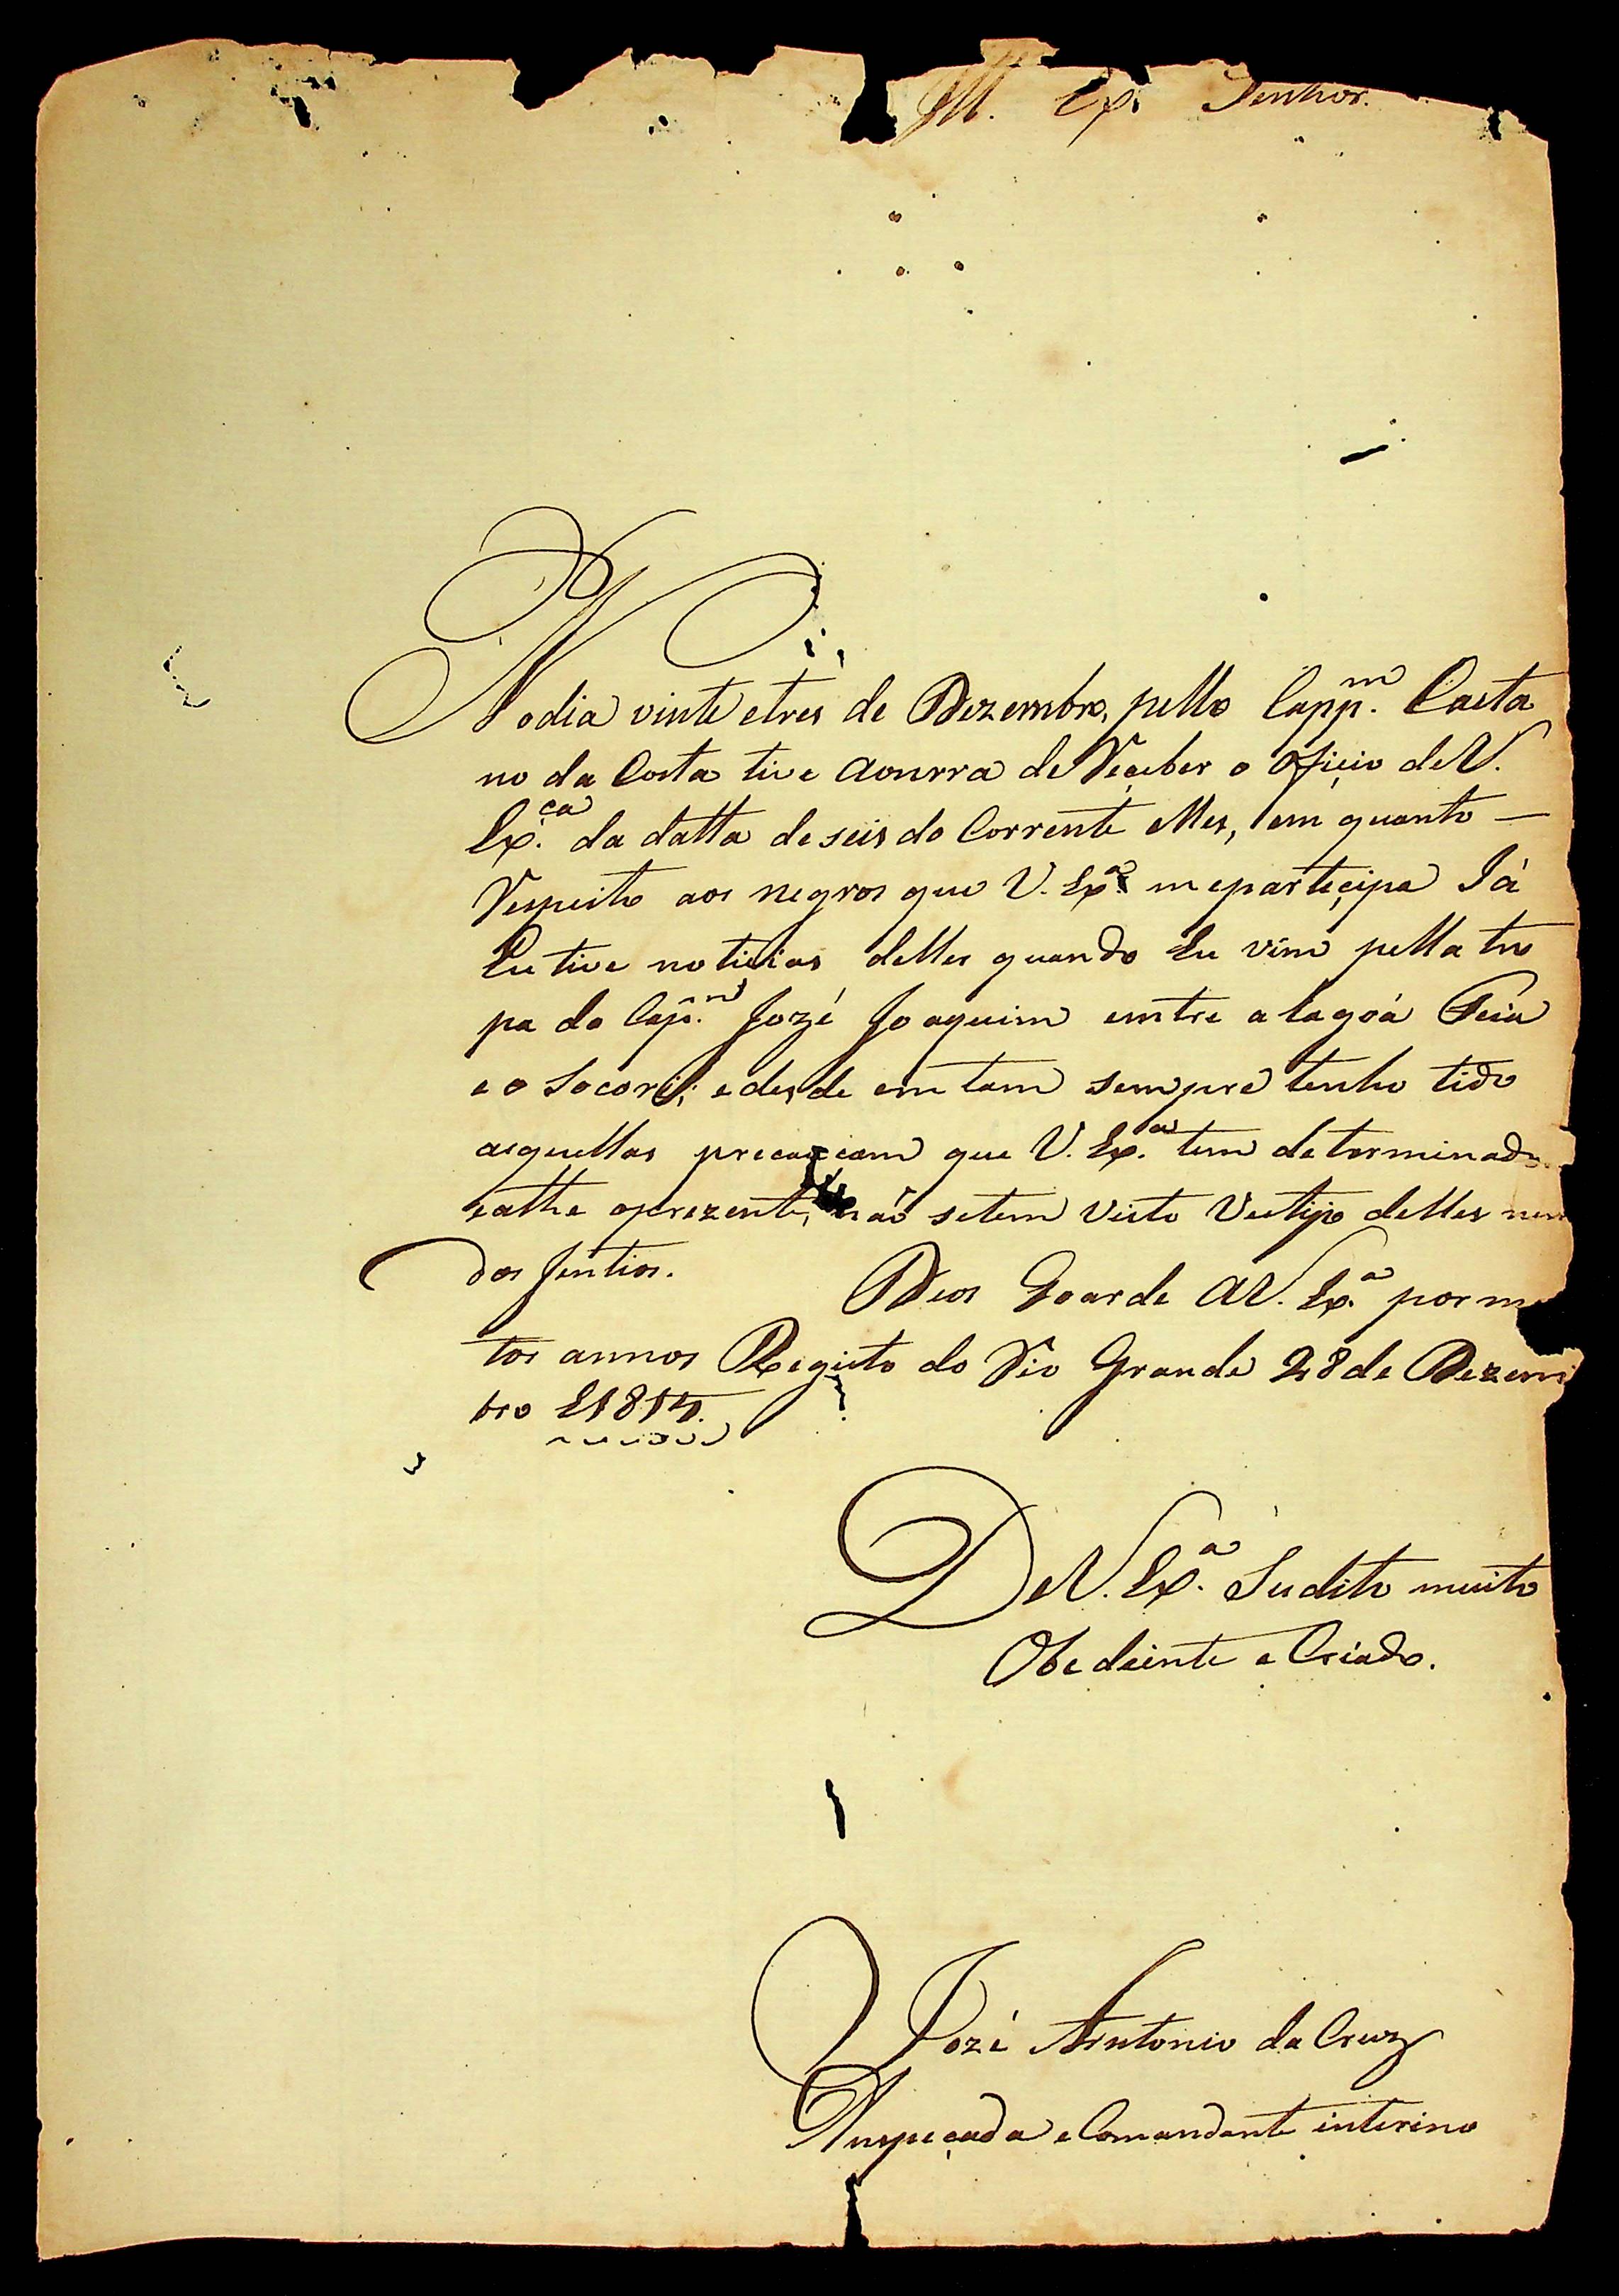 Ill. Ex. Senhor.
No dia vinte etres de Dezembro, pello Capp.m Caeta
no da Costa tive aonrra de Receber o Oficio de V.
Ex.ca da datta de seis do Corrente Mes, em quanto —
Respeito aos negros que V. Ex.a mepartecipa Já
Eu tive noticias delles quando Eu vim pella tro
pa do Cap.m Jozé Joaquim emtre a lagoá Feia
e o Socoriú; e desde em tam sempre tenho tido
aequellas precauçam que V. Ex.a tem determinado
eathe oprezente, não setem visto Vestigo delles nem
dos Jentios. Deos Goarde A V. Ex.a por m
tos annos Registo do Rio Grande 28 de Dezem
bro 1814.
De V. Ex.a Sudito muito
Obediente e Criado.
Jozé Antonio da Cruz
Anspeçada e Comandante interino